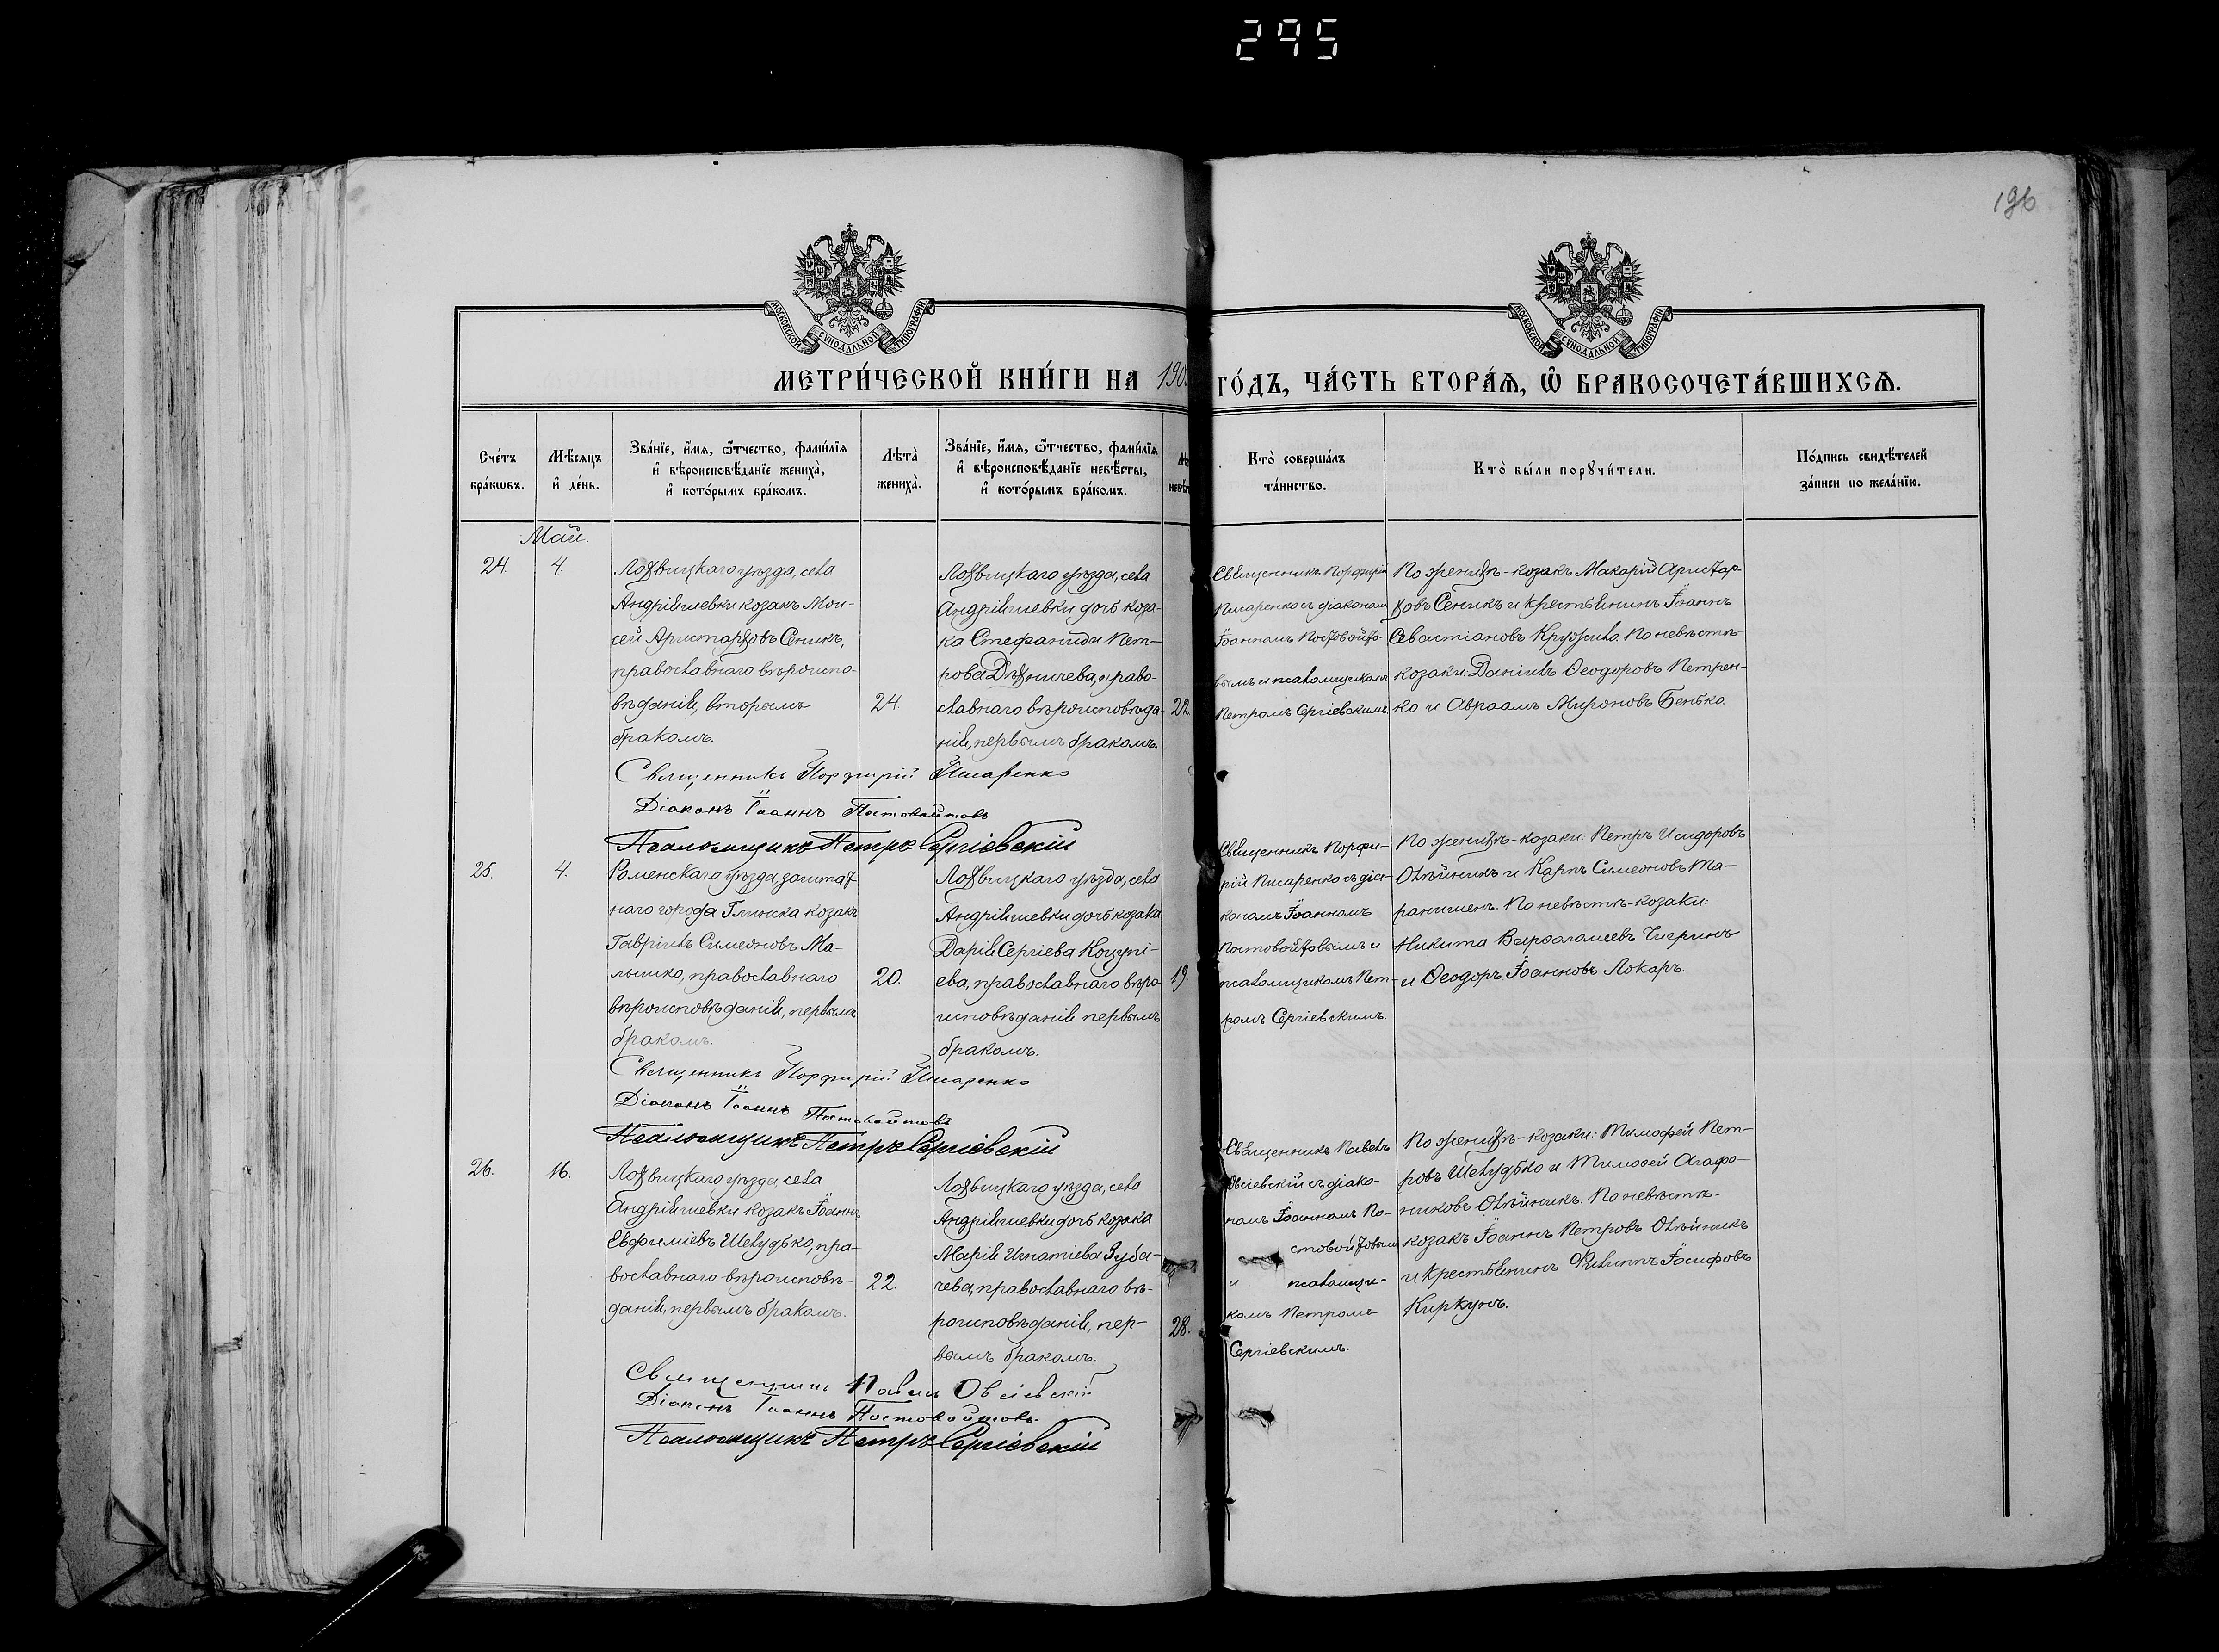 295
196
МОСКОВСКОЙ СѴНОДАЛЬНОЙ ТИПОГРАФІИ
МОСКОВСКОЙ СѴНОДАЛЬНОЙ ТИПОГРАФІИ
МЕТРИ́ЧЕСКОЙ КНИ́ГИ НА 190
ГО́ДЪ, ЧА́СТЬ ВТОРА́Ѧ, Ѽ БРАКОСОЧЕТА́ВШИХСѦ.
Сче́тъ бра́кѡвъ.
Мѣ́сяцъ и҆ де́нь.
Зва́нїе, и҆́мѧ, ѻ҆́тчество, фами́лїѧ и҆ вѣроисповѣ́данїе жениха̀, и҆ кото́рымъ бра́комъ.
Лѣ́та̀ жениха̀.
Зва́нїе, и҆́мѧ, ѻ҆́тчество, фами́лїѧ и҆ вѣроисповѣ́данїе невѣ́сты, и҆ кото́рымъ бра́комъ.
Кто̀ соверша́лъ та́инство.
Кто̀ бы́ли порꙋчи́тели.
По́дпись свидѣ́телей за́писи по жела́нїю.
Май.
24.
4.
Лохвицкаго уѣзда, села
Андріяшевки козакъ Мои-
сей Аристарховъ Сеникъ,
православнаго вѣроиспо-
вѣданія, вторымъ
бракомъ.
24.
Лохвицкаго уѣзда, села
Андріяшевки дочь коза-
ка Стефанида Пет-
рова Дѣхничева, право-
славнаго вѣроисповѣда-
нія, первымъ бракомъ.
22.
Священникъ Порфирій
Писаренко съ діакономъ
Іоанномъ Постовойто-
вымъ и псаломщикомъ
Петромъ Сергіевскимъ.
По женихѣ - козакъ Макарій Аристар-
ховъ Сеникъ и крестьянинъ Іоаннъ
Севастіановъ Кружило. По невѣстѣ
козаки: Даніилъ Ѳеодоровъ Петрен-
ко и Авраамъ Мироновъ Бенько.
Священникъ Порфирій Писаренко
Діаконъ Іоаннъ Постовойтовъ
Псаломщикъ Петръ Сергіевскій
25.
4.
Роменскаго уѣзда, заштат-
наго города Глинска козакъ
Гавріилъ Симеоновъ Ма-
лышко, православнаго
вѣроисповѣданія, первымъ
бракомъ.
20.
Лохвицкаго уѣзда, села
Андріяшевки дочь козака
Дарія Сергіева Коцупі-
ева, православнаго вѣро-
исповѣданія первымъ
бракомъ.
19.
Священникъ Порфи-
рій Писаренко съ діа-
кономъ Іоанномъ
Постовойтовымъ и
псаломщикомъ Пет-
ромъ Сергіевскимъ.
По женихѣ - козаки: Петръ Исидоровъ
Олѣйникъ и Карпъ Симеоновъ Та-
ранишенъ. По невѣстѣ - козаки:
Никита Варѳоломеевъ Чигринъ
и Ѳеодоръ Іоанновъ Локаръ.
Священникъ Порфирій Писаренко
Діаконъ Іоаннъ Постовойтовъ
Псаломщикъ Петръ Сергіевскій
26.
16.
Лохвицкаго уѣзда, села
Андріяшевки козакъ Іоаннъ
Евфиміевъ Шелудько, пра-
вославнаго вѣроисповѣ-
данія, первымъ бракомъ.
22.
Лохвицкаго уѣзда, села
Андріяшевки дочь козака
Марія Игнатіева Зуба-
чева, православнаго вѣ-
роисповѣданія, пер-
вымъ бракомъ.
28.
Священникъ Павелъ
Овсіевскій съ діако-
номъ Іоанномъ По-
стовойтовымъ
и псаломщи-
комъ Петромъ
Сергіевскимъ.
По женихѣ - козаки: Тимофей Пет-
ровъ Шелудько и Тимоѳей Агафо-
никовъ Олѣйникъ. По невѣстѣ -
козакъ Іоаннъ Петровъ Олѣйникъ
и крестьянинъ Филиппъ Іосифовъ
Киркунъ.
Священникъ Павелъ Овсіевскій
Діаконъ Іоаннъ Постовойтовъ
Псаломщикъ Петръ Сергіевскій